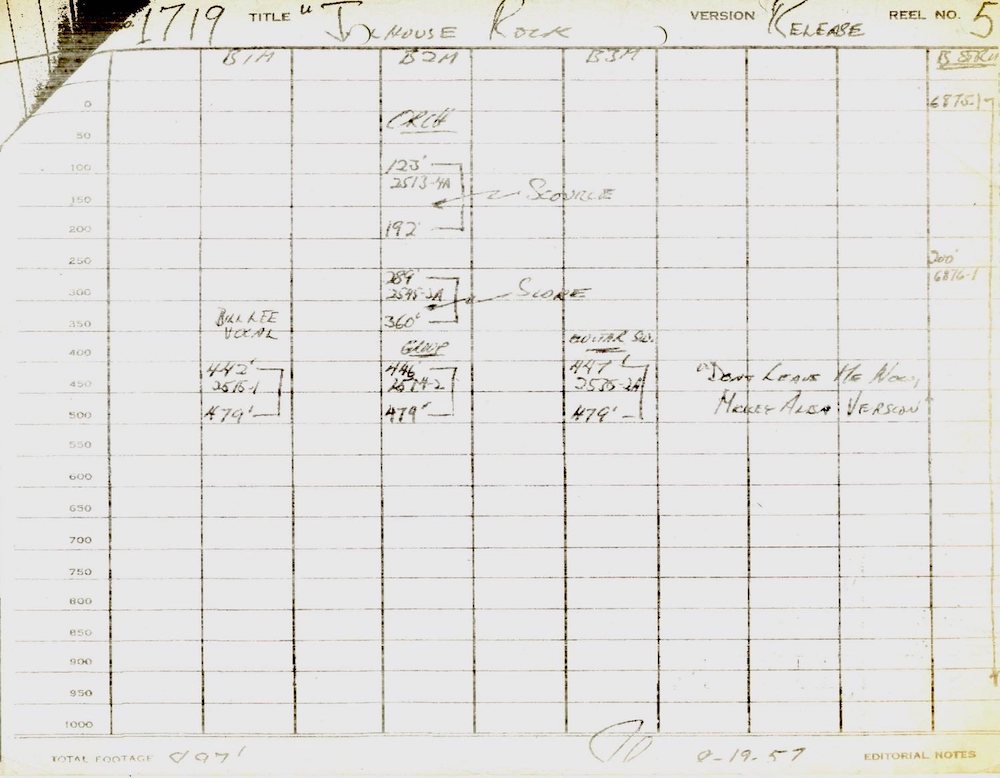 1719 TITLE "J HOUSE ROCK VERSION RELEASE REEL NO. 5
B1M B2M B3M
0
50
100
150
200
250
300
350
400
450
500
550
600
650
700
750
800
850
900
950
1000
ORCH
123'
2513-4A
192'
SCOURCE
289'
360'
SCORE
BILL LEE
VOCAL
442'
2515-1
479'
GROUP
446'
2514-2
479'
GUITAR
447'
479'
"DONT LEAVE ME NOW,
VERSION"
6875-1
200'
6876-1
TOTAL FOOTAGE 897' 8-19-57 EDITORIAL NOTES